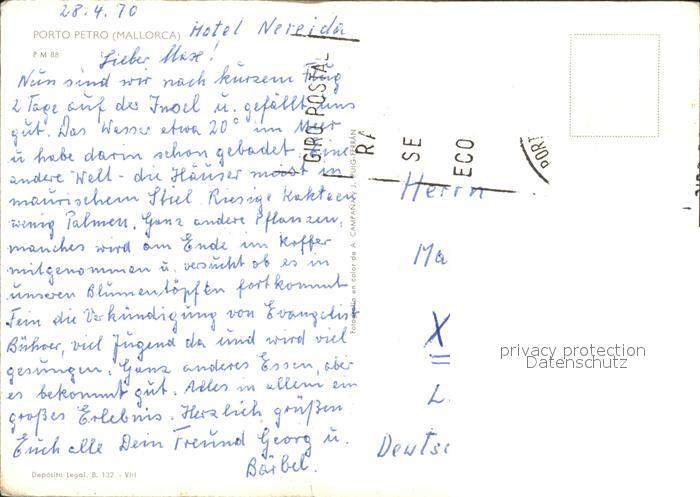 28.4.70
Hotel Nereida
PORTO PETRO (MALLORCA)
P M 88
Lieber Max!
Nun sind wir nach kurzem Flug
2 Tage auf der Insel u. gefällt uns
gut. Das Wasser etwa 20° im Meer
u habe darin schon gebadet. Eine
andere Welt - die Häuser meist in
maurischem Stiel. Riesige Kakteen
wenig Palmen. Ganz andere Pflanzen,
manches wird am Ende im Koffer
mitgenommen u. versucht ob es in
unseren Blumentöpfen fortkommt
Fein die Verkündigung von Evangelist
viel Jugend da und wird viel
gesungen. Ganz anderes Essen, aber
es bekommt gut. Alles in allem ein
großes Erlebnis. Herzlich grüßen
Euch alle Dein Freund Georg u.
Bärbel.
Depósito Legal, B. 132. - VIII
Fotografía en color de A. CAMPAÑA y J. PUIG-FERRÁN
GIRO POSTAL
RÁ
SE
ECO
PORT
Herrn
Ma
X
L.
Deutsc
privacy protection
Datenschutz